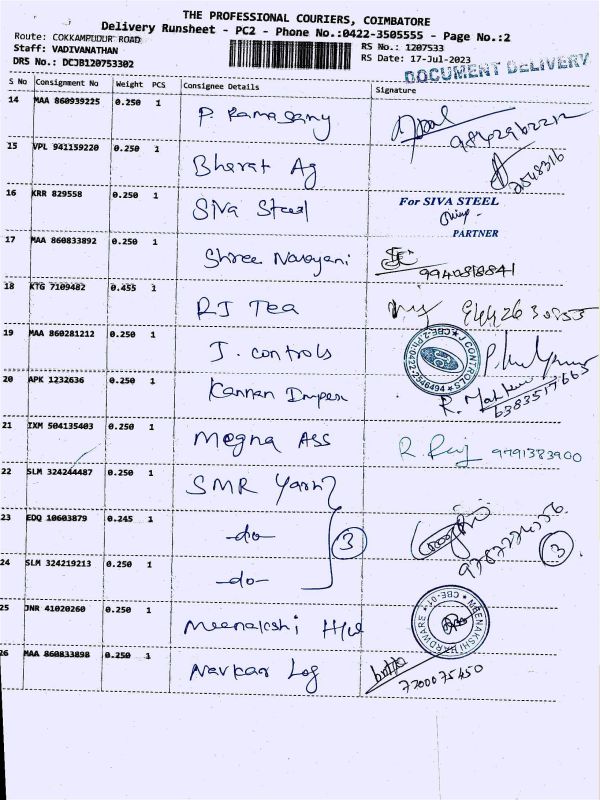 THE PROFESSIONAL COURIERS, COIMBATORE
Delivery Runsheet - PC2 - Phone No.:0422-3505555 - Page No.:2
Route: COKKAMPUDUR ROAD
Staff: VADIVANATHAN
DRS No.: DCJB120753302
RS No.: 1207533
RS Date: 17-Jul-2023
DOCUMENT DELIVERY
S No Consignment No Weight PCS Consignee Details Signature
14 MAA 860939225 0.250 1 P. Ramasamy
15 VPL 941159220 0.250 1 Bharat Ag 2548316
16 KRR 829558 0.250 1 Siva Steel For SIVA STEEL
PARTNER
17 MAA 860833892 0.250 1 Shree Narayani 9940818841
18 KTG 7109482 0.455 1 RJ Tea
19 MAA 860281212 0.250 1 J. controls J CONTROLS CBE-2 Ph:0422-2546494
20 APK 1232636 0.250 1 Kannan Impex 6383517665
21 IXM 504135403 0.250 1 Megna Ass R. Raj 9791383900
22 SLM 324244487 0.250 1 SMR Yarn
23 EDQ 10603879 0.245 1 -do- 3 3
24 SLM 324219213 0.250 1 -do-
25 JNR 41020260 0.250 1 Meenakshi H/w MEENAKSHI HARDWARE CBE-01
26 MAA 860833898 0.250 1 Navkar Log 7200075450